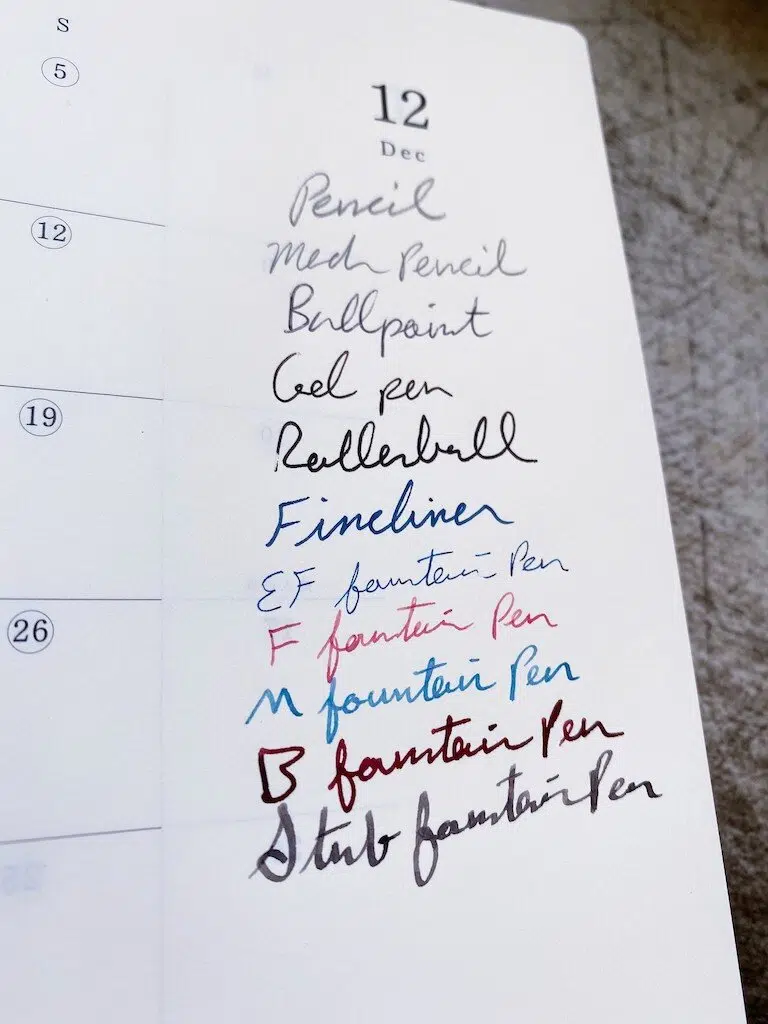 S
5
12
19
26
12
Dec
Pencil
Mech Pencil
Ballpoint
Gel pen
Rollerball
Fineliner
EF fountain Pen
F fountain Pen
M fountain Pen
B fountain Pen
Stub fountain Pen